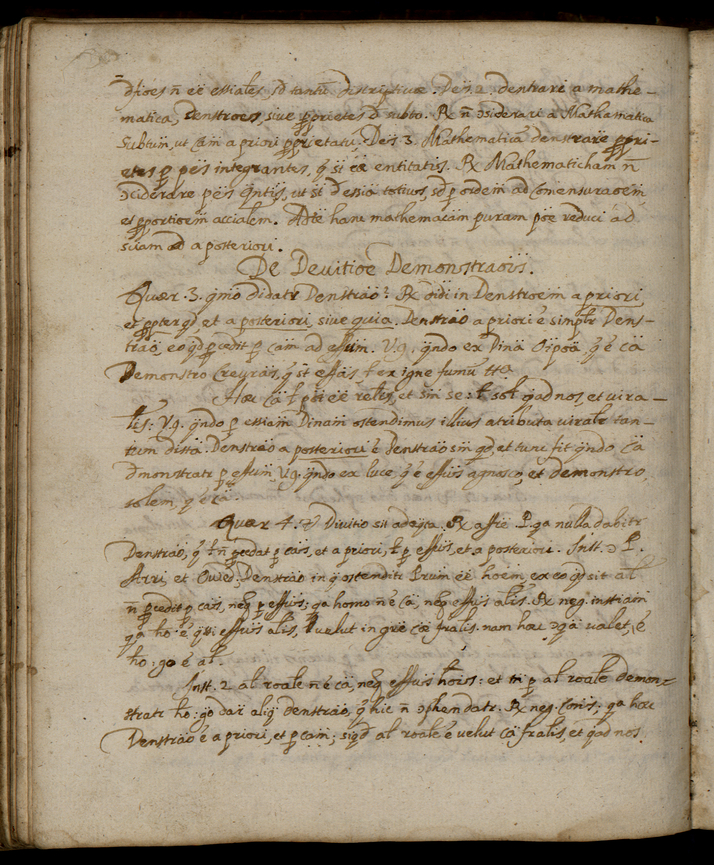 dfioes ñ eē essiales, sd tantũ discriptivæ. Deis 2. dentrari a mathe-
matica, Denstroes, sive pprietes d subto. R ñ ɔsiderari a Mathamatica
Subtum, ut Cam a priori pprietatũ, Deis 3. Mathematica denstrare ppri-
etes p peis integrantes, q si cæ entitatis. R Mathematicham ñ
ɔsiderare peis qntis, ut st d essia totius, sd p ordem ad Comensuraoem,
et pportioem accialem. Adte hanc mathemacam puram pōe reduci ad
suam a posteriori.
De Devitioe Demonstraois.
Quær. 3. qmo dıdatr Denstrao? R didi in Denstroem a priori,
et ppter qd, et a posteriori, sive quia. Denstrao a priori ē simplr Dens-
trao, eo qd pcedit p Cam ad effum. Vg. qndo ex Dina Oipoa, q ē ca
Demonstro Creyras, q st effus, ł ex igne fumũ
Hæc Ca ł pōi eē relis, et sm se: ł sol qad nos, et vira-
lis: Vg. qndo p essiam Dinam ostendimus illius atributa viralr tan-
tum distta. Denstrao a posteriori ē denstrao sm qd, et tunc fit qndo Ca
dmonstratr p effum, Vg. qndo ex luce, q ē effus agnosco, et demonstro
solem, q ē ca.
Quær 4. Divitio sit adeqta. R affir P. qa nulla dabitr
Denstrao, q ł ñ pcedat p cãs, et a priori, ł p effus, et a posteriori. Inst. ɔ P.
Arri, et Ovied, Denstrao in q ostenditr Prum eē hoem, ex eo qd sit al
ñ pcedit p cãs, neq p effus; qa homo ñ ē Ca, neq effus alis. R neg. instiam
qa ho ē qsi effus alis, velut in gre cæ fralis. nam hæc ɔqa valet, ē
ho: go ē al.
Inst. 2. al roale ñ ē ca, neq effus hois: et tñ p al roale demon-
stratr ho: go datr aliq denstrao, q hic ñ ɔphendatr. R neg. Conis: qa hæc
Denstrao ē a priori, et p cam; siqd al roale ē velut Ca fralis, et qad nos